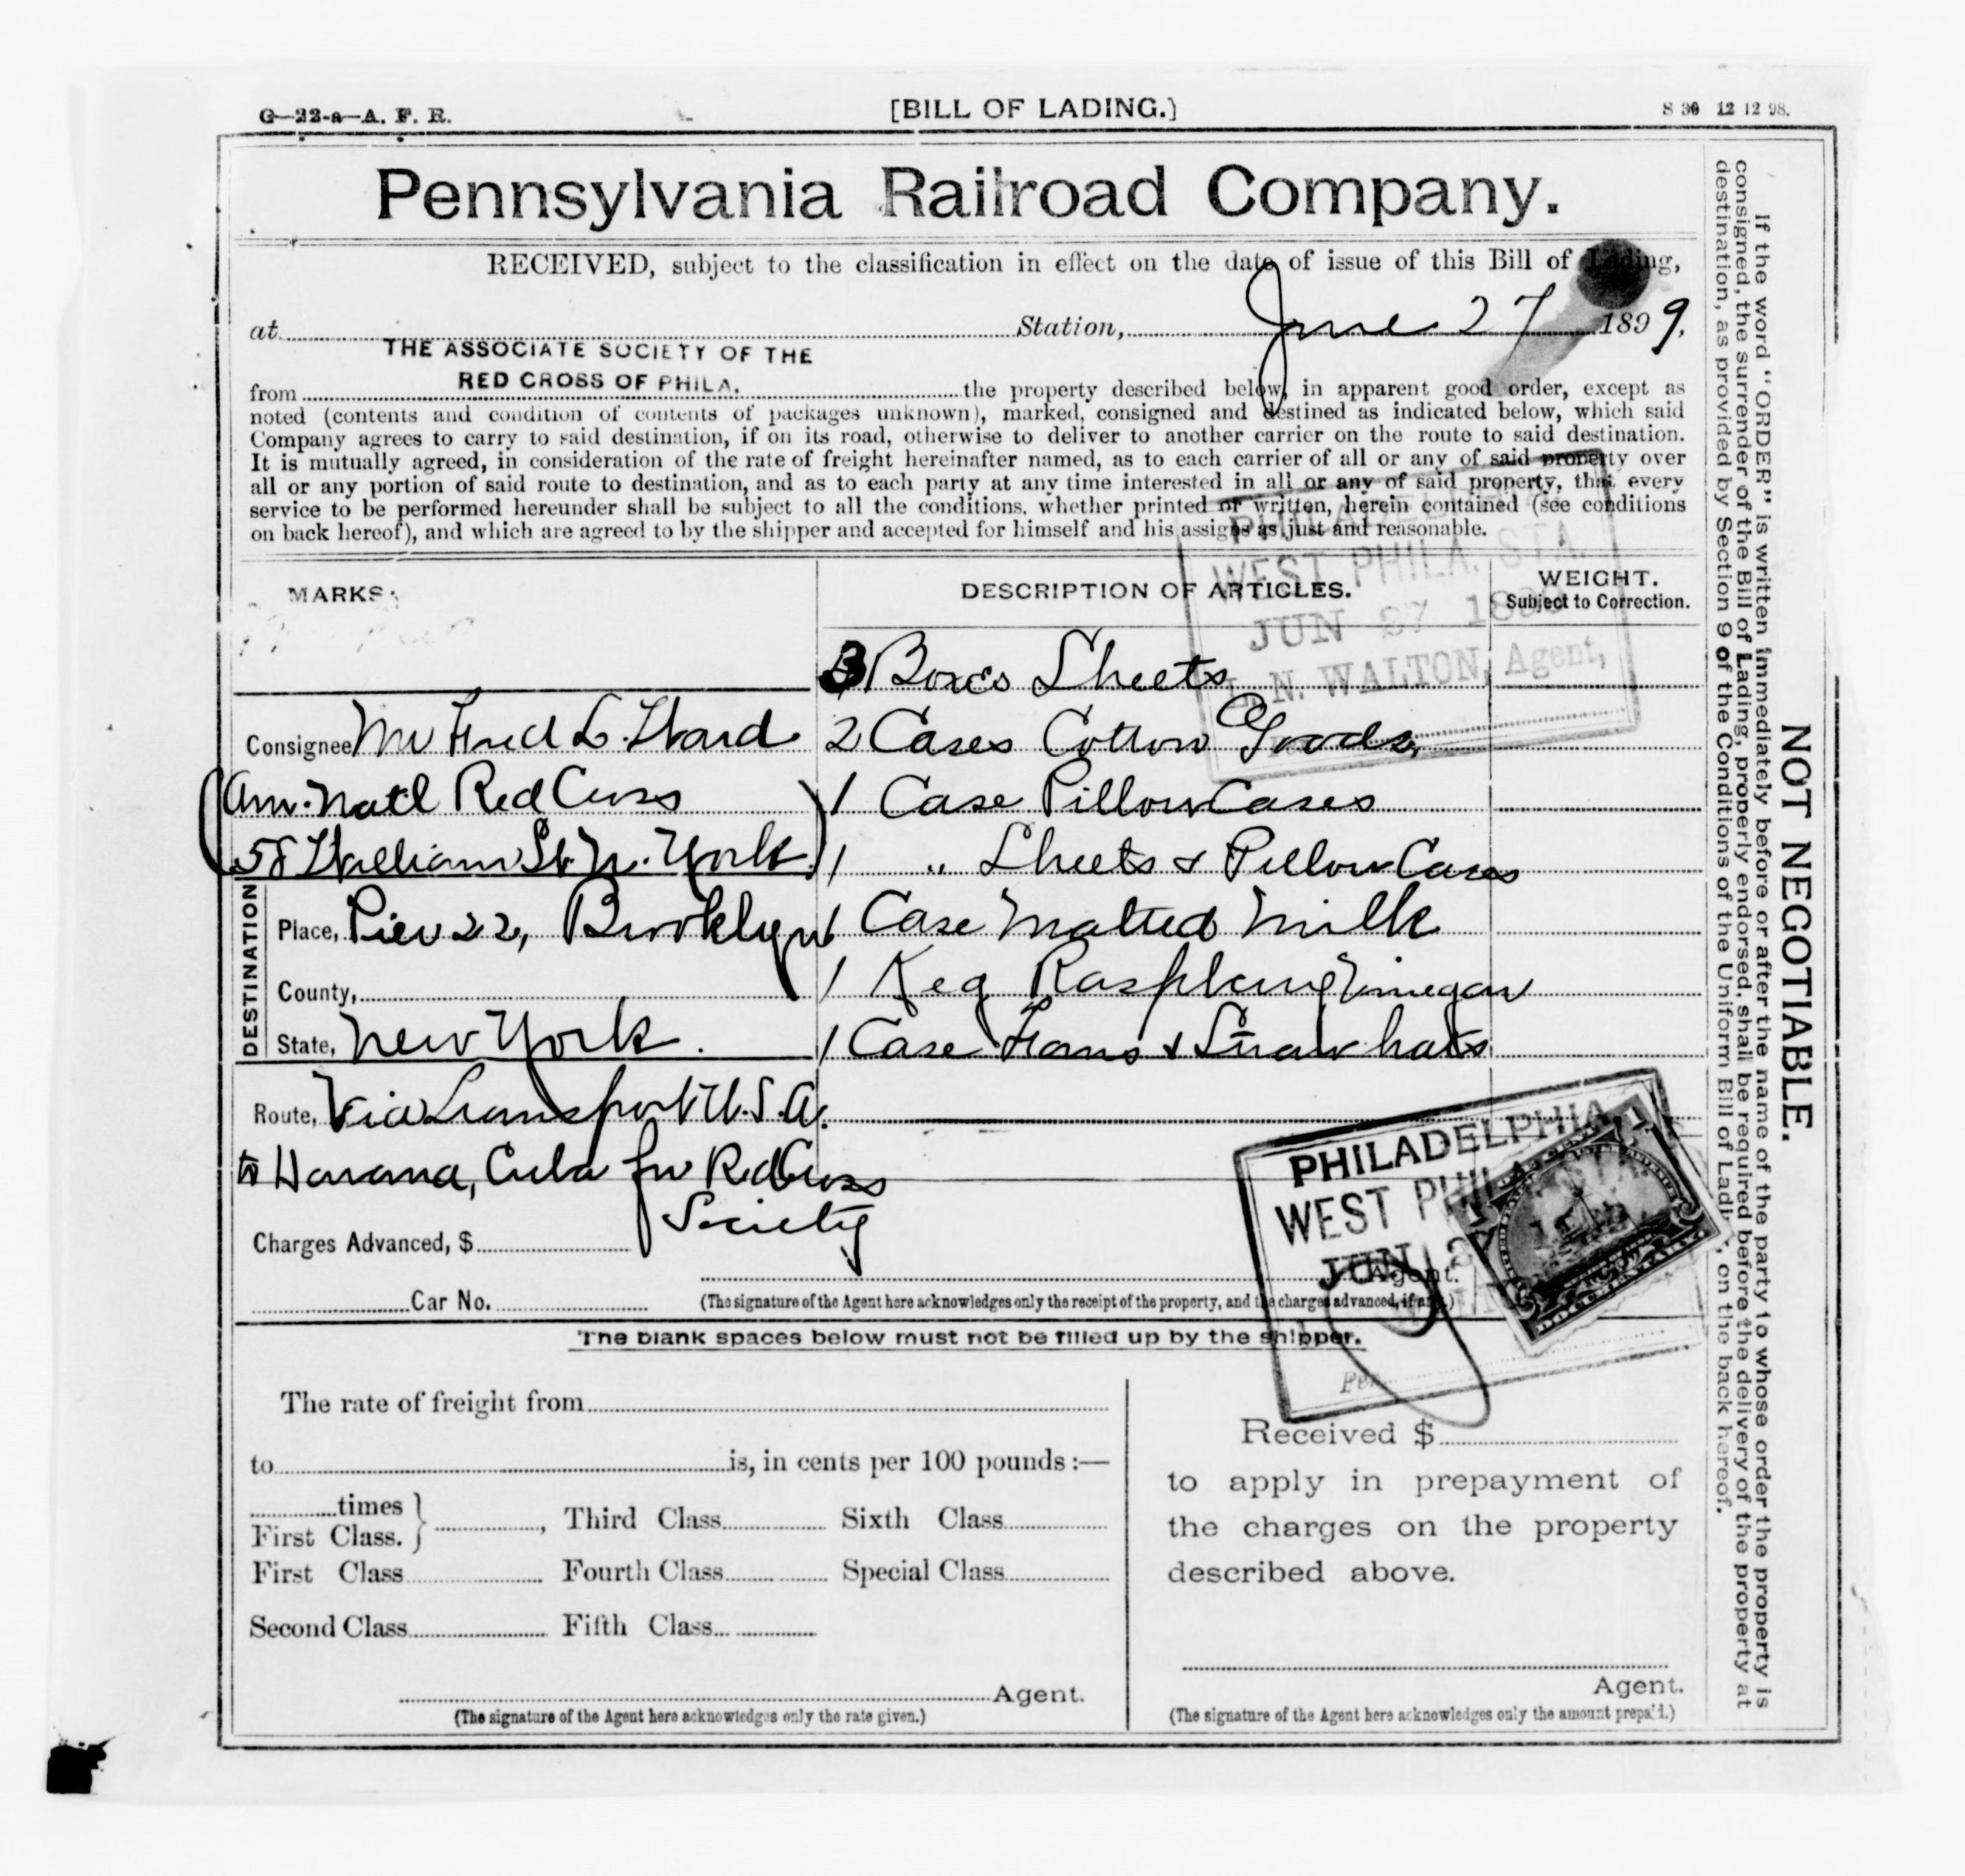 G—22-a—A. F. R.
[BILL OF LADING.]
S 30 12 12 98.
Pennsylvania Railroad Company.
RECEIVED, subject to the classification in effect on the date of issue of this Bill of Lading,
at Station, June 27 1899,
THE ASSOCIATE SOCIETY OF THE
RED CROSS OF PHILA.
from the property described below, in apparent good order, except as
noted (contents and condition of contents of packages unknown), marked, consigned and destined as indicated below, which said
Company agrees to carry to said destination, if on its road, otherwise to deliver to another carrier on the route to said destination.
It is mutually agreed, in consideration of the rate of freight hereinafter named, as to each carrier of all or any of said property over
all or any portion of said route to destination, and as to each party at any time interested in all or any of said property, that every
service to be performed hereunder shall be subject to all the conditions, whether printed or written, herein contained (see conditions
on back hereof), and which are agreed to by the shipper and accepted for himself and his assigns as just and reasonable.
PHILADELPHIA
WEST PHILA. STA.
JUN 27 1899
N. WALTON, Agent,
MARKS:
DESCRIPTION OF ARTICLES.
WEIGHT.
Subject to Correction.
3 Boxes Sheets
2 Cases Cotton Goods,
1 Case Pillow Cases
1 " Sheets & Pillow Cases
1 Case Malted Milk
1 Keg Raspberry Vinegar
1 Case Fans & Straw hats
Consignee Mr Fred L. Ward
(Am. Natl Red Cross
58 William St. N. York.)
DESTINATION
Place, Pier 22, Brooklyn
County,
State, New York.
Route, Via Transport U.S.A.
to Havana, Cuba for Red Cross
Society
Charges Advanced, $
Car No.
Agent.
(The signature of the Agent here acknowledges only the receipt of the property, and the charges advanced, if any.)
PHILADELPHIA
WEST PHILA
JUN 27
Per
The blank spaces below must not be filled up by the shipper.
The rate of freight from
to is, in cents per 100 pounds:—
times
First Class. } , Third Class Sixth Class
First Class Fourth Class Special Class
Second Class Fifth Class
Agent.
(The signature of the Agent here acknowledges only the rate given.)
Received $
to apply in prepayment of
the charges on the property
described above.
Agent.
(The signature of the Agent here acknowledges only the amount prepaid.)
If the word "ORDER" is written immediately before or after the name of the party to whose order the property is
consigned, the surrender of the Bill of Lading, properly endorsed, shall be required before the delivery of the property at
destination, as provided by Section 9 of the Conditions of the Uniform Bill of Lading, on the back hereof.
NOT NEGOTIABLE.